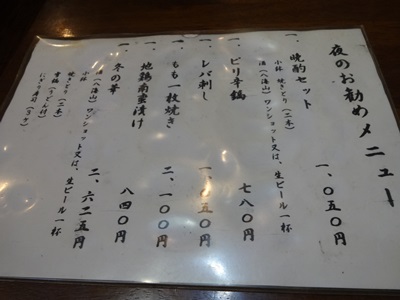 夜のお勧めメニュー
一、晩酌セット 一、〇五〇円
小鉢 焼きとり(二本)
酒(八海山)ワンショット又は、生ビール一杯
一、ピリ辛鍋 七八〇円
一、レバ刺し 一、〇五〇円
一、もも一枚焼き 二、一〇〇円
一、地鶏南蛮漬け 八四〇円
一、冬の華 二、六二五円
酒(八海山)ワンショット又は、生ビール一杯
小鉢
焼きとり(二本)
(うどん付)
にぎり寿司(3ケ)